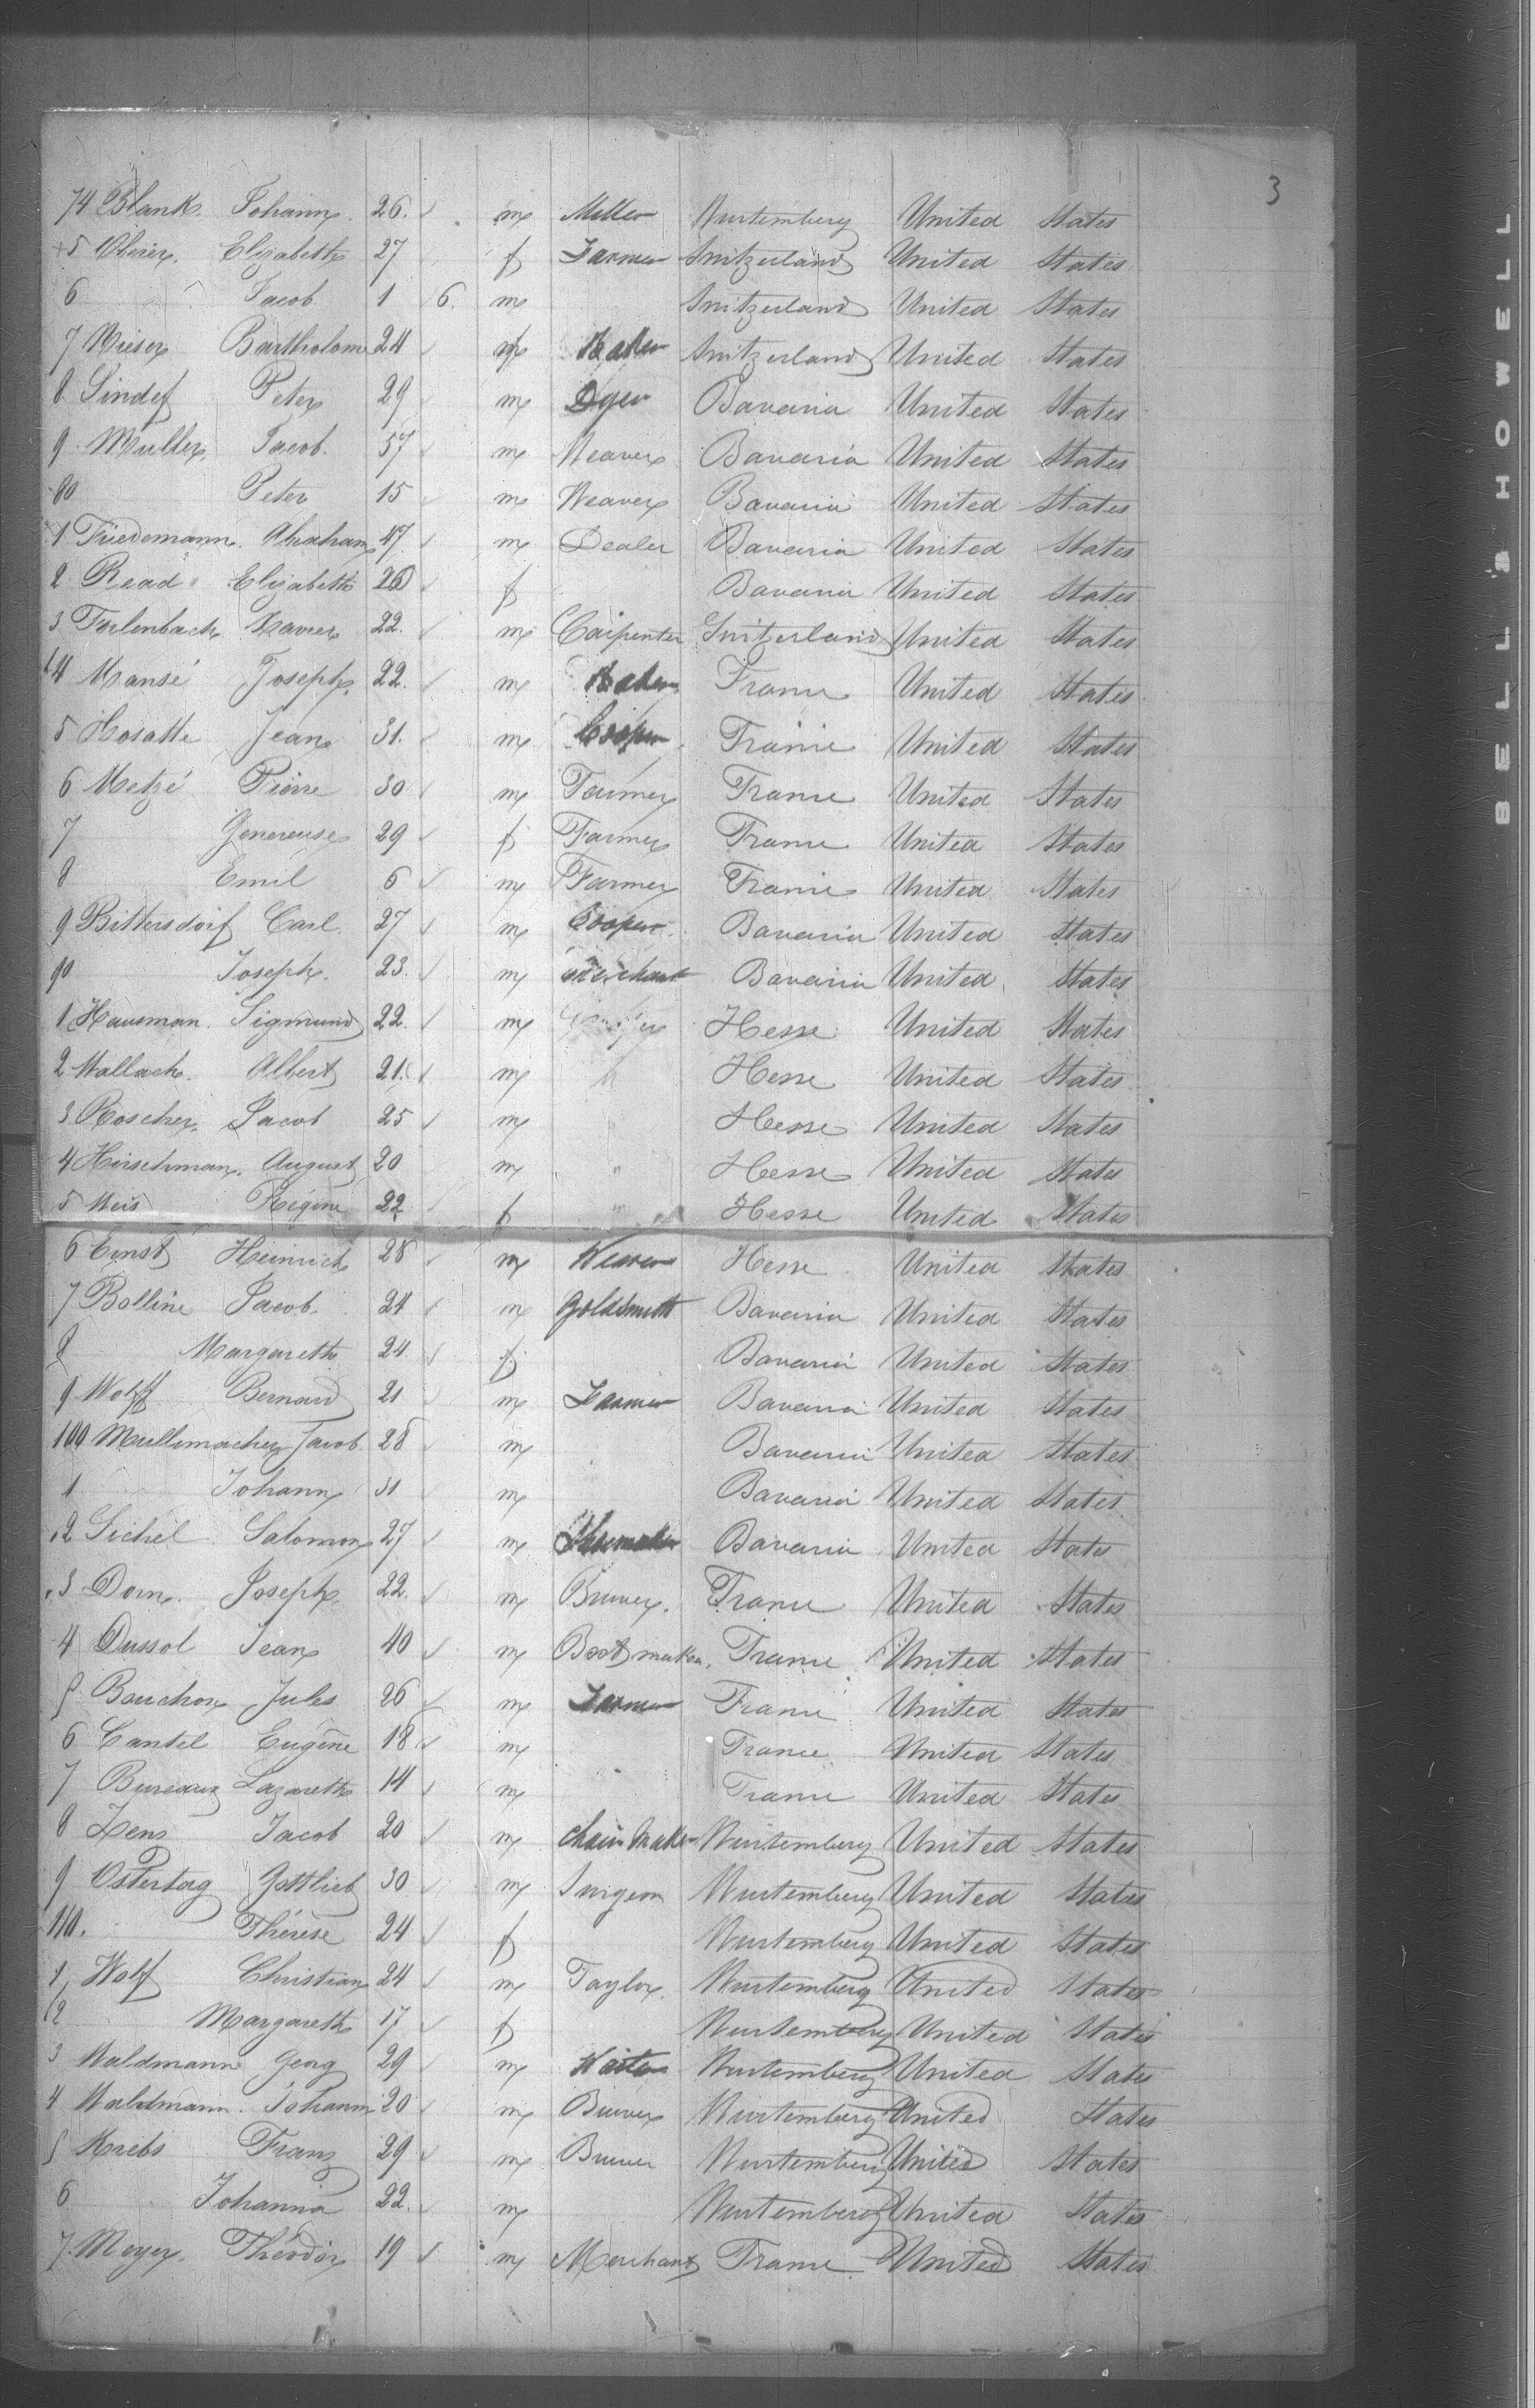 3
74 Blank. Johann. 26. m Miller Wurtemberg United States
5 Elizabeth 27 f Farmer Switzerland United States
6 Jacob 1 6. m Switzerland United States
7 Wieser Bartholome 24 m Baker Switzerland United States
8 Lindef Peter 29 m Dyer Bavaria United States
9 Muller Jacob. 57 m Weaver Bavaria United States
80 Peter 15 m Weaver Bavaria United States
1 Friedemann. Abraham 47 m Dealer Bavaria United States
2 Read Elizabeth 26 f Bavaria United States
3 Furlenbach Xavier 22. m Carpenter Switzerland United States
4 Mansé Joseph. 22. m Baker France United States
5 Hosatte Jean 31. m Cooper France United States
6 Metzé Pierre 30 m Farmer France United States
7 Genereuse 29 f Farmer France United States
8 Emil 6 m Farmer France United States
9 Bittersdorf Carl. 27 m Cooper Bavaria United States
90 Joseph. 23. m Merchant Bavaria United States
1 Hausman. Sigmund 22. m Hesse United States
2 Wallach. Albert 21. m " Hesse United States
3 Roscher. Jacob 25 m " Hesse United States
4 Hirschman. August 20 m " Hesse United States
5 Weis Regine 22 f " Hesse United States
6 Ernst Heinrich 28 m Weaver Hesse United States
7 Bolline Jacob. 24 m Goldsmith Bavaria United States
8 Margareth 24. f Bavaria United States
9 Wolff Bernard 21 m Farmer Bavaria United States
100 Mullemacher Jacob. 28 m Bavaria United States
1 Johann 31 m Bavaria United States
2 Sichel Salomon 27 m Shoemaker Bavaria United States
3 Dorn. Joseph. 22. m Brewer. France United States
4 Dussol Jean 40 m Bootmaker. France United States
5 Bouchon Jules 26 m Farmer France United States
6 Cantel Eugène 18 m France United States
7 Bureaux Lazareth 14 m France United States
8 Jacob 20 m Chair Maker Wurtemberg United States
9 Ostertag Gottlieb 30 m Surgeon Wurtemberg United States
110. Thérèse 24 f Wurtemberg United States
1 Wolf Christian 24 m Taylor. Wurtemberg United States
2 Margareth 17 f Wurtemberg United States
3 Waldmann Georg 29 m Waiter Wurtemberg United States
4 Waldmann. Johann 20 m Brewer Wurtemberg United States
5 Krebs Franz 29 m Brewer Wurtemberg United States
6 Johanna 22. m Wurtemberg United States
7 Meyer. Théodor 19 m Merchant France United States
BELL & HOWELL